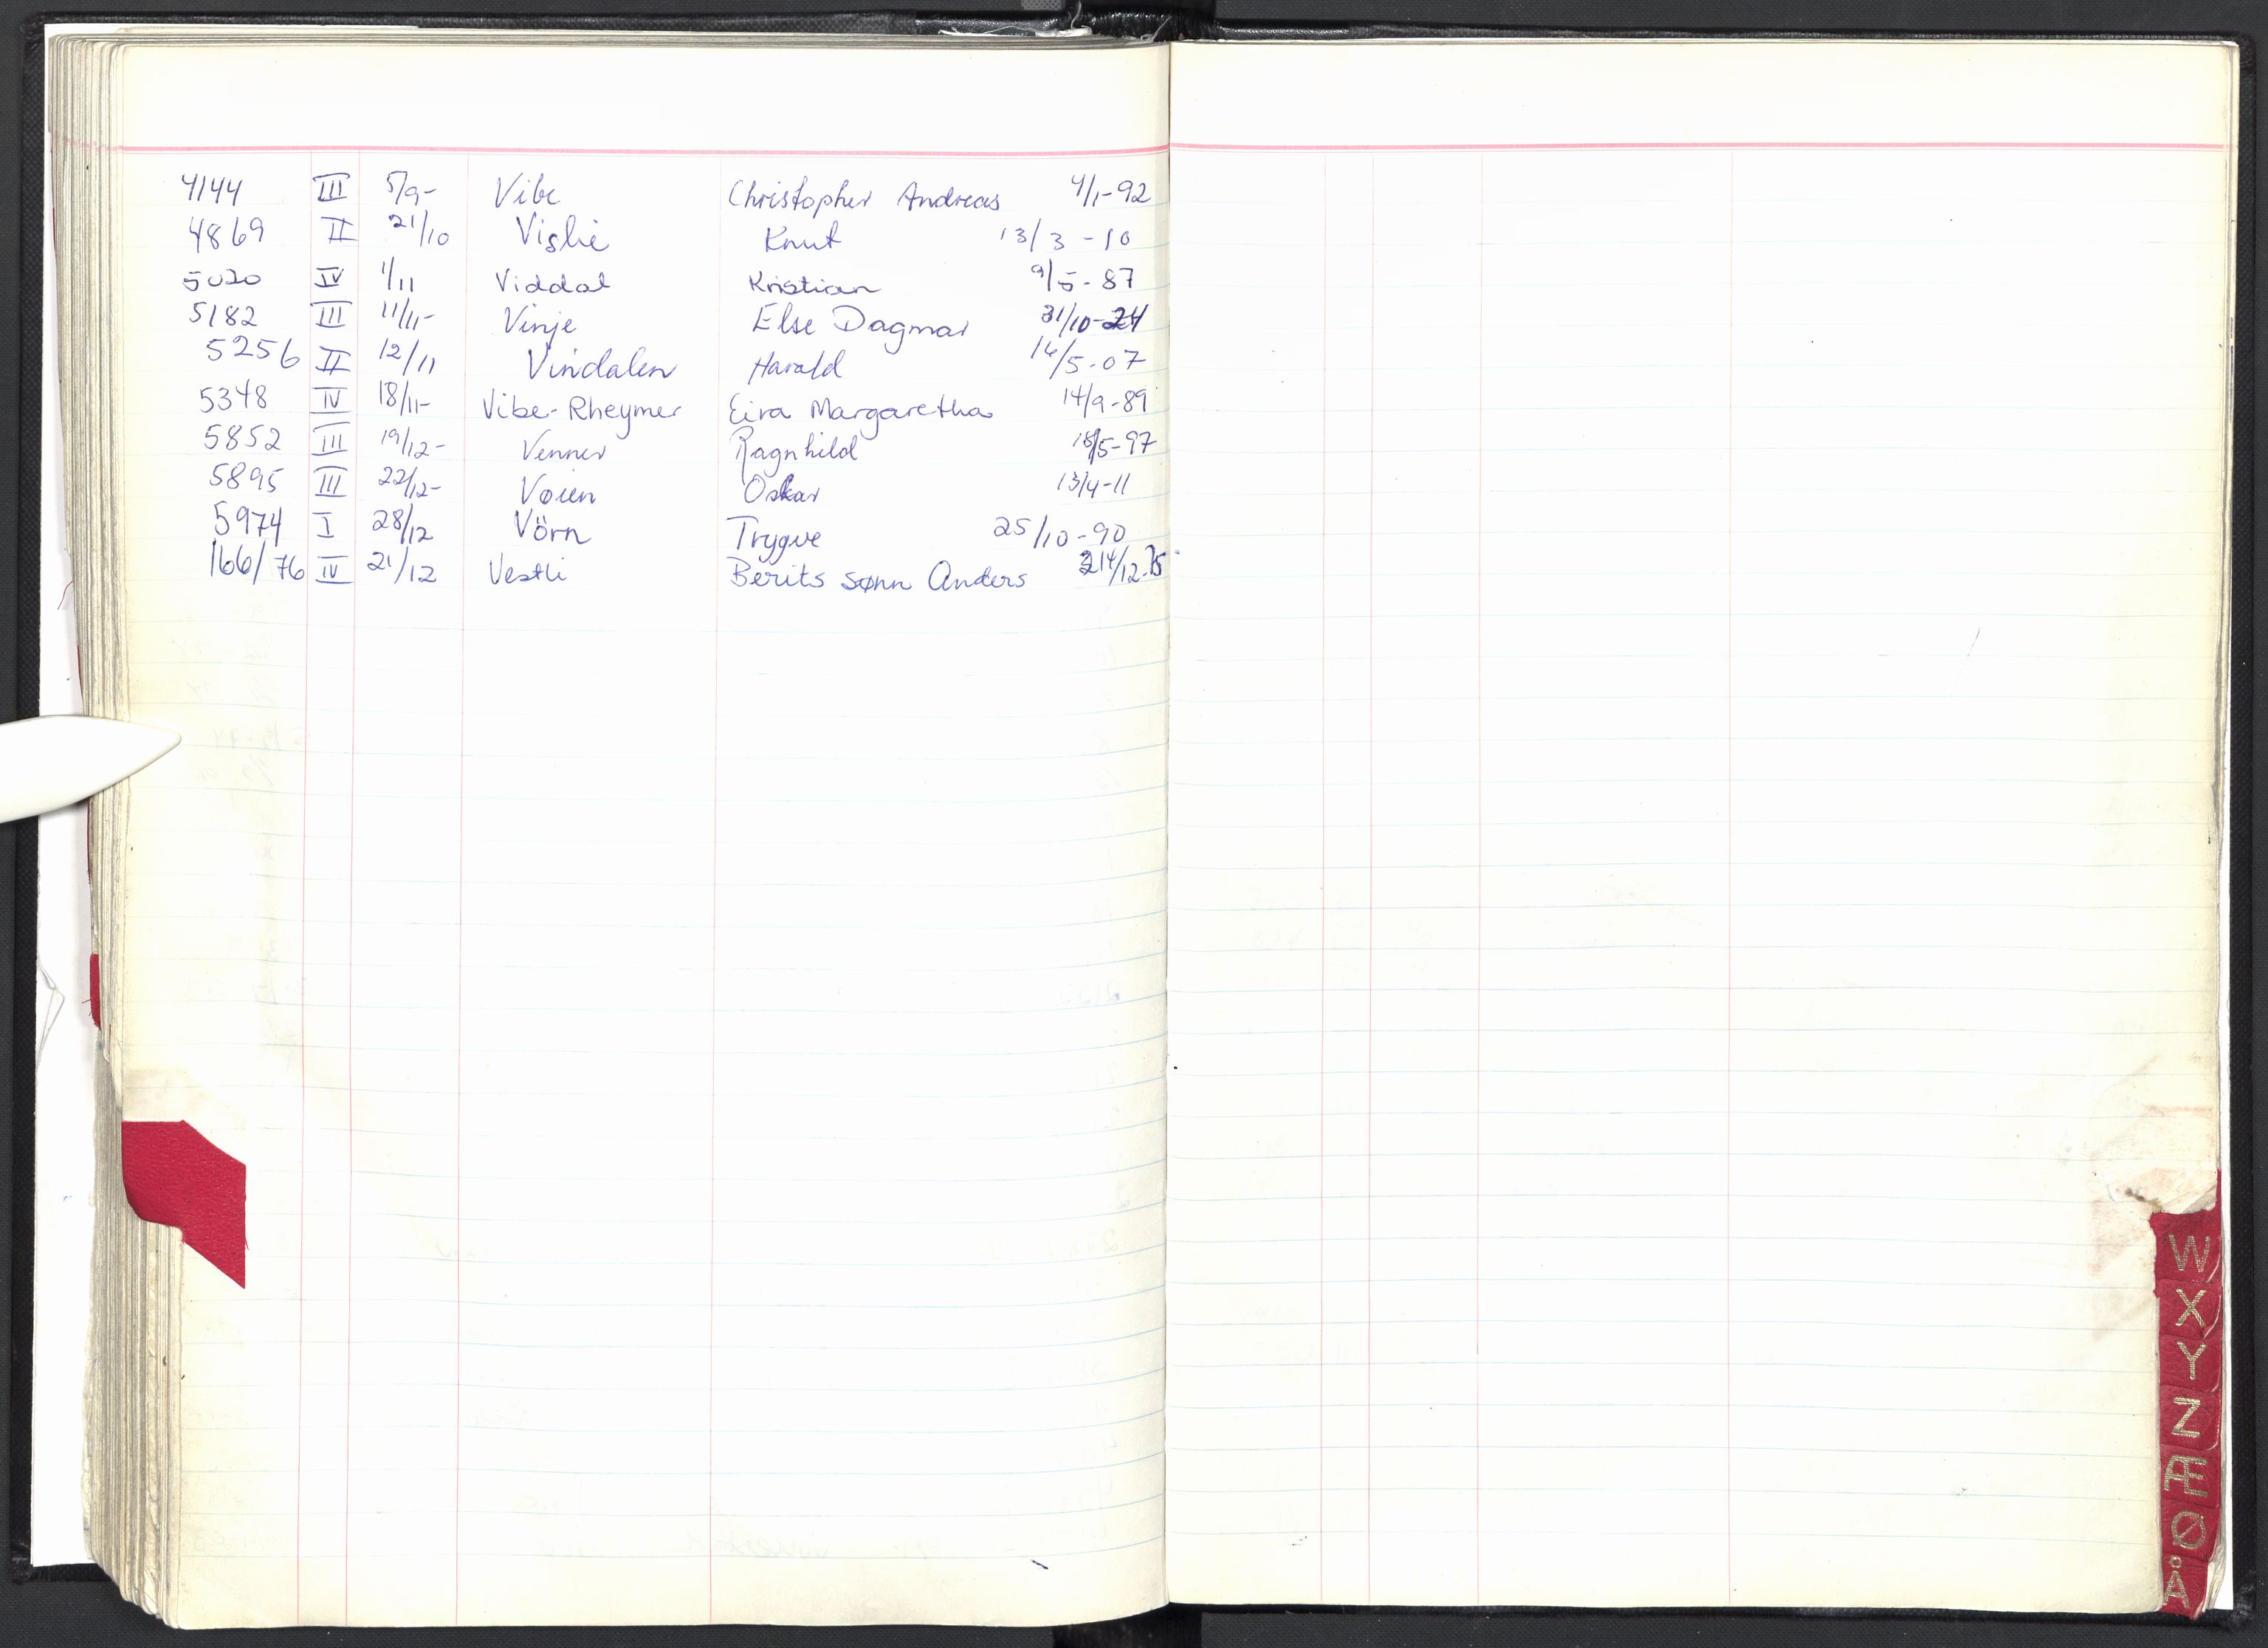 4144 III 5/9- Vibe Christopher Andreas 4/1-92
4869 II 21/10 Vislie Knut 13/3-10
5020 IV 1/11 Viddal Kristian 9/5-87
5182 III 11/11- Vinje Else Dagmar 31/10-24
5256 II 12/11 Vindalen Harald 16/5-07
5348 IV 18/11- Vibe-Rheymer Eira Margaretha 14/9-89
5852 III 19/12- Venner Ragnhild 18/5-97
5895 III 22/12- Voien Oskar 13/4-11
5974 I 28/12 Vörn Trygve 25/10-90
166/76 IV 21/12 Vestli Berits sønn Anders
W
X
Y
Z
Æ
Ø
Å